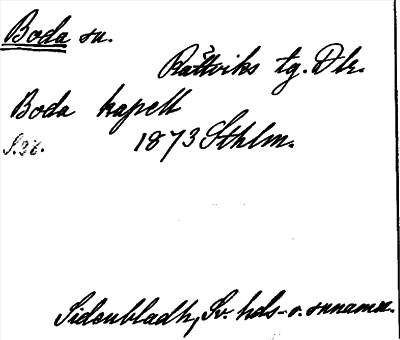 Boda sn.
Rättviks tg. Dlr.
Boda kapell
S.36. 1873 Sthlm.
Sidenbladh, Sv. hds- o. snnamn.